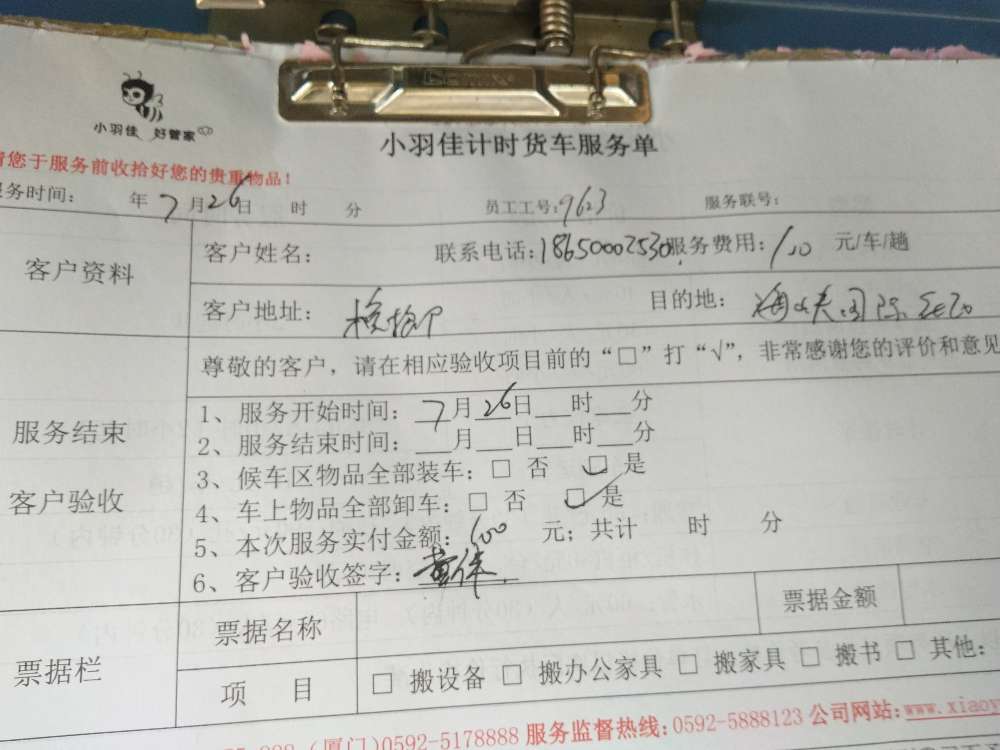 小羽佳 好管家
小羽佳计时货车服务单
您于服务前收拾好您的贵重物品！
务时间： 年 7 月 26 日 时 分 员工工号：9623 服务联号：
客户资料
客户姓名： 联系电话：18650002530 服务费用： 元/车/趟
客户地址： 目的地：
尊敬的客户，请在相应验收项目前的“□”打“√”，非常感谢您的评价和意见
服务结束
客户验收
1、服务开始时间：7月26日___时___分
2、服务结束时间：___月___日___时___分
3、候车区物品全部装车：□ 否 ☑ 是
4、车上物品全部卸车：□ 否 ☑ 是
5、本次服务实付金额：600 元；共计 时 分
6、客户验收签字：
票据栏
票据名称 票据金额
项 目 □ 搬设备 □ 搬办公家具 □ 搬家具 □ 搬书 □ 其他：
(厦门)0592-5178888 服务监督热线：0592-5888123 公司网站：www.xiaoy